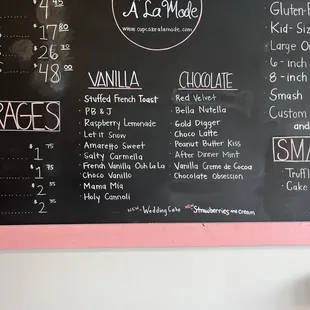 A La Mode
www.cupcakealamode.com
4 45
17 80
26 35
48 00
VANILLA
Stuffed French Toast
PB & J
Raspberry Lemonade
Let it Snow
Amaretto Sweet
Salty Carmella
French Vanilla Ooh La La
Choco Vanillo
Mama Mia
Holy Cannoli
CHOCOLATE
Red Velvet
Bella Nutella
Gold Digger
Choco Latte
Peanut Butter Kiss
After Dinner Mint
Vanilla Creme de Cocoa
Chocolate Obsession
NEW Wedding Cake NEW Strawberries and Cream
RAGES
$ 1 75
$ 1 75
$ 2 75
$ 2
Gluten-F
Kid-Siz
Large O
6-inch
8-inch
Smash
Custom
and
SMA
Truffl
Cake